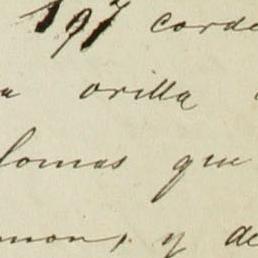 197 corde
a orilla
lomas que
mon, y de